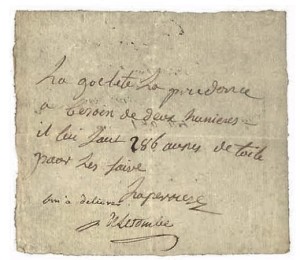 La goelete La prudence
a besoin de deux hunieres
il lui faut 286 aunes de toile
pour les faire
Laperriere
bon à délivrer